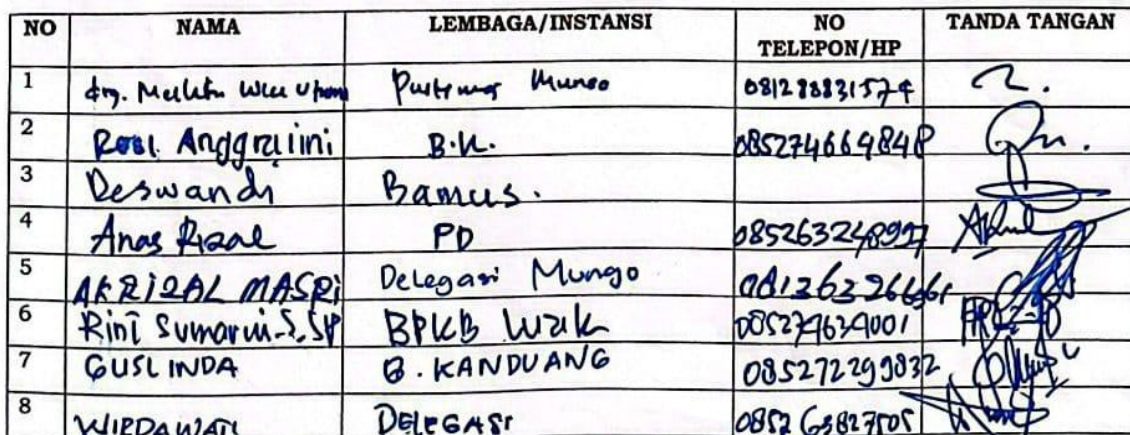 NO NAMA LEMBAGA/INSTANSI NO TELEPON/HP TANDA TANGAN
1 drg. Puskesmas Mungo 081288831574
2 Rosi Anggraiini B.K. 085274669848
3 Deswandi Bamus.
4 Anas Rizal PD 085263248997
5 AKRIZAL MASRI Delegasi Mungo 081263266661
6 Rini Sumarni.S.SP BPKB Luak 085274634001
7 GUSLINDA B. KANDUANG 085272299832
8 WIRDAWATI DELEGASI 085263827505